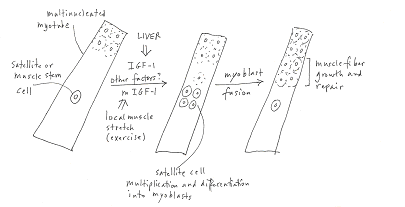 multinucleated
myotube
Satellite or
muscle stem
cell
LIVER
IGF-1
other factors?
m IGF-1
local muscle
stretch
(exercise)
satellite cell
multiplication and differentiation
into myoblasts
myoblast
fusion
muscle fiber
growth and
repair